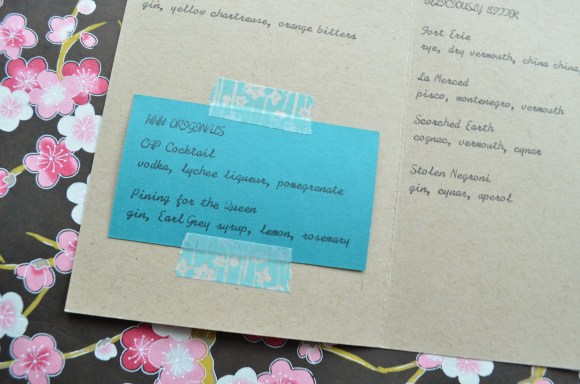 gin, yellow chartreuse, orange bitters
ORIGINALS
CAP Cocktail
vodka, lychee liqueur, pomegranate
Pining for the Queen
gin, Earl Grey syrup, lemon, rosemary
DELICIOUSLY BITTER
Fort Erie
rye, dry vermouth, china china,
La Merced
pisco, montenegro, vermouth
Scorched Earth
cognac, vermouth, cynar
Stolen Negroni
gin, cynar, aperol